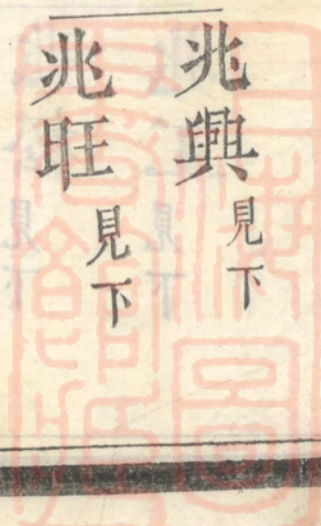 兆興見下
兆旺見下